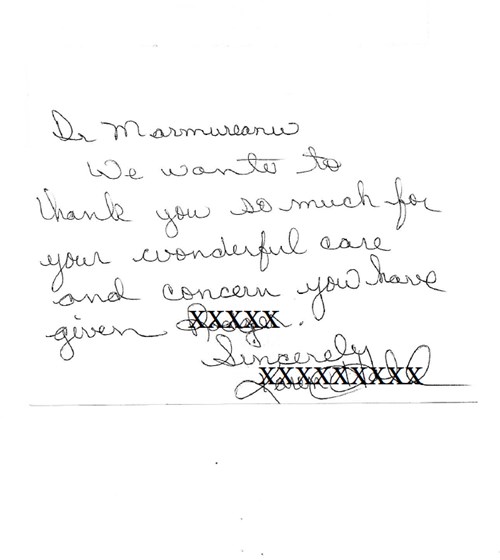 Dr Marmureanu
We wante to
thank you so much for
your wonderful care
and concern you have
given XXXXX.
Sincerely
XXXXXXXXX